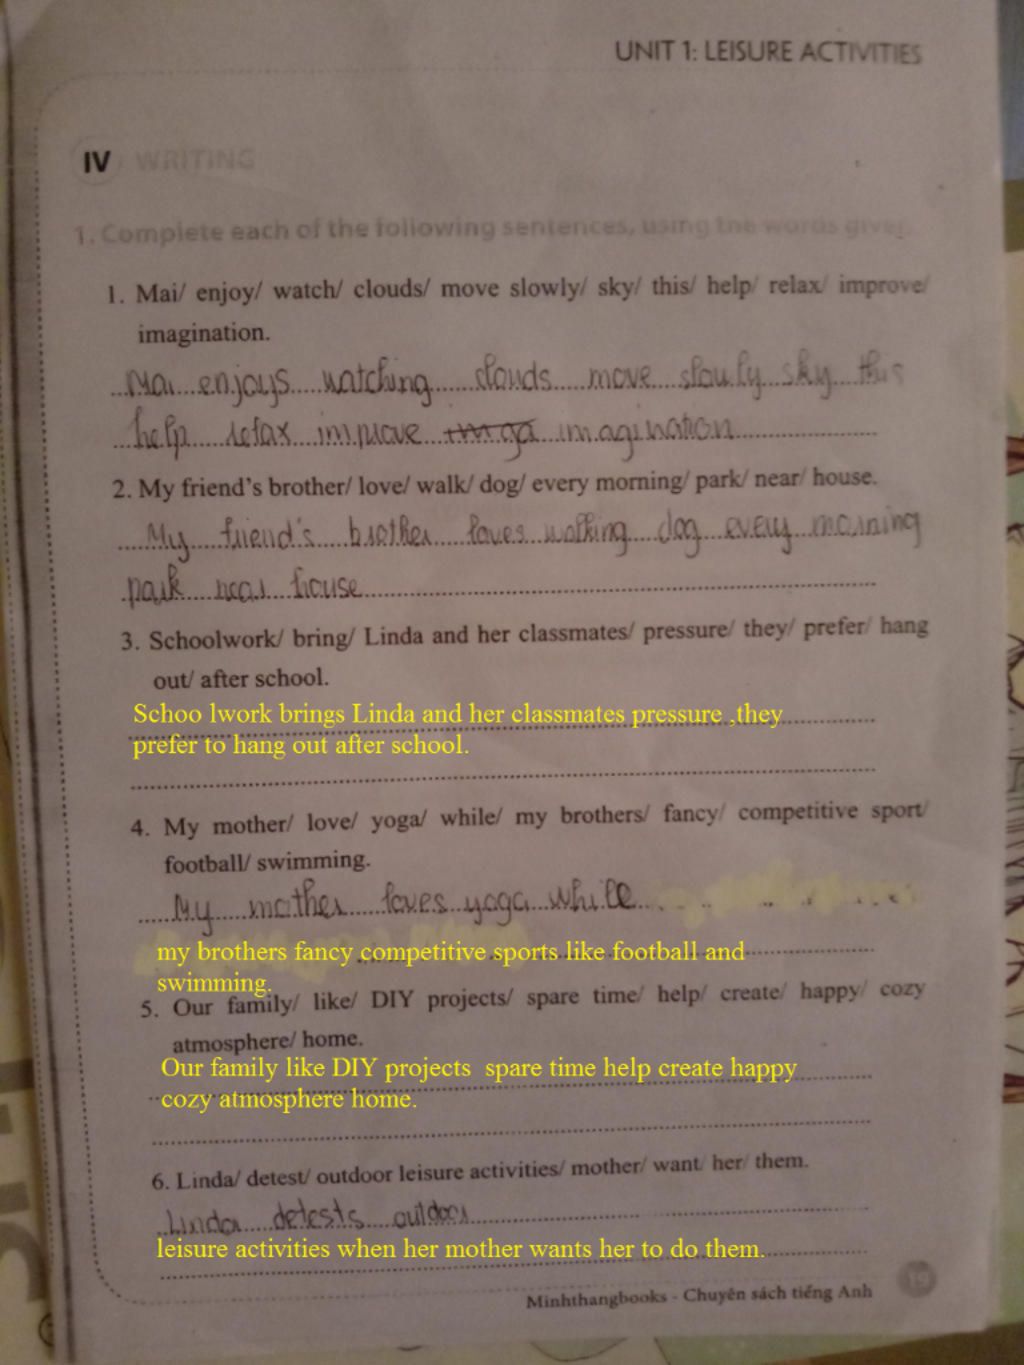 UNIT 1: LEISURE ACTIVITIES
IV WRITING
1. Complete each of the following sentences, using the words given.
1. Mai/ enjoy/ watch/ clouds/ move slowly/ sky/ this/ help/ relax/ improve/
imagination.
Mai enjoys watching clouds move slowly sky this
help relax improve imagination
2. My friend's brother/ love/ walk/ dog/ every morning/ park/ near/ house.
My friend's brother loves walking dog every morning
park near house
3. Schoolwork/ bring/ Linda and her classmates/ pressure/ they/ prefer/ hang
out/ after school.
Schoo lwork brings Linda and her classmates pressure ,they
prefer to hang out after school.
4. My mother/ love/ yoga/ while/ my brothers/ fancy/ competitive sport/
football/ swimming.
My mother loves yoga while
my brothers fancy competitive sports like football and
swimming.
5. Our family/ like/ DIY projects/ spare time/ help/ create/ happy/ cozy
atmosphere/ home.
Our family like DIY projects spare time help create happy
cozy atmosphere home.
6. Linda/ detest/ outdoor leisure activities/ mother/ want/ her/ them.
Linda detests outdoor
leisure activities when her mother wants her to do them.
Minhthangbooks - Chuyên sách tiếng Anh
19